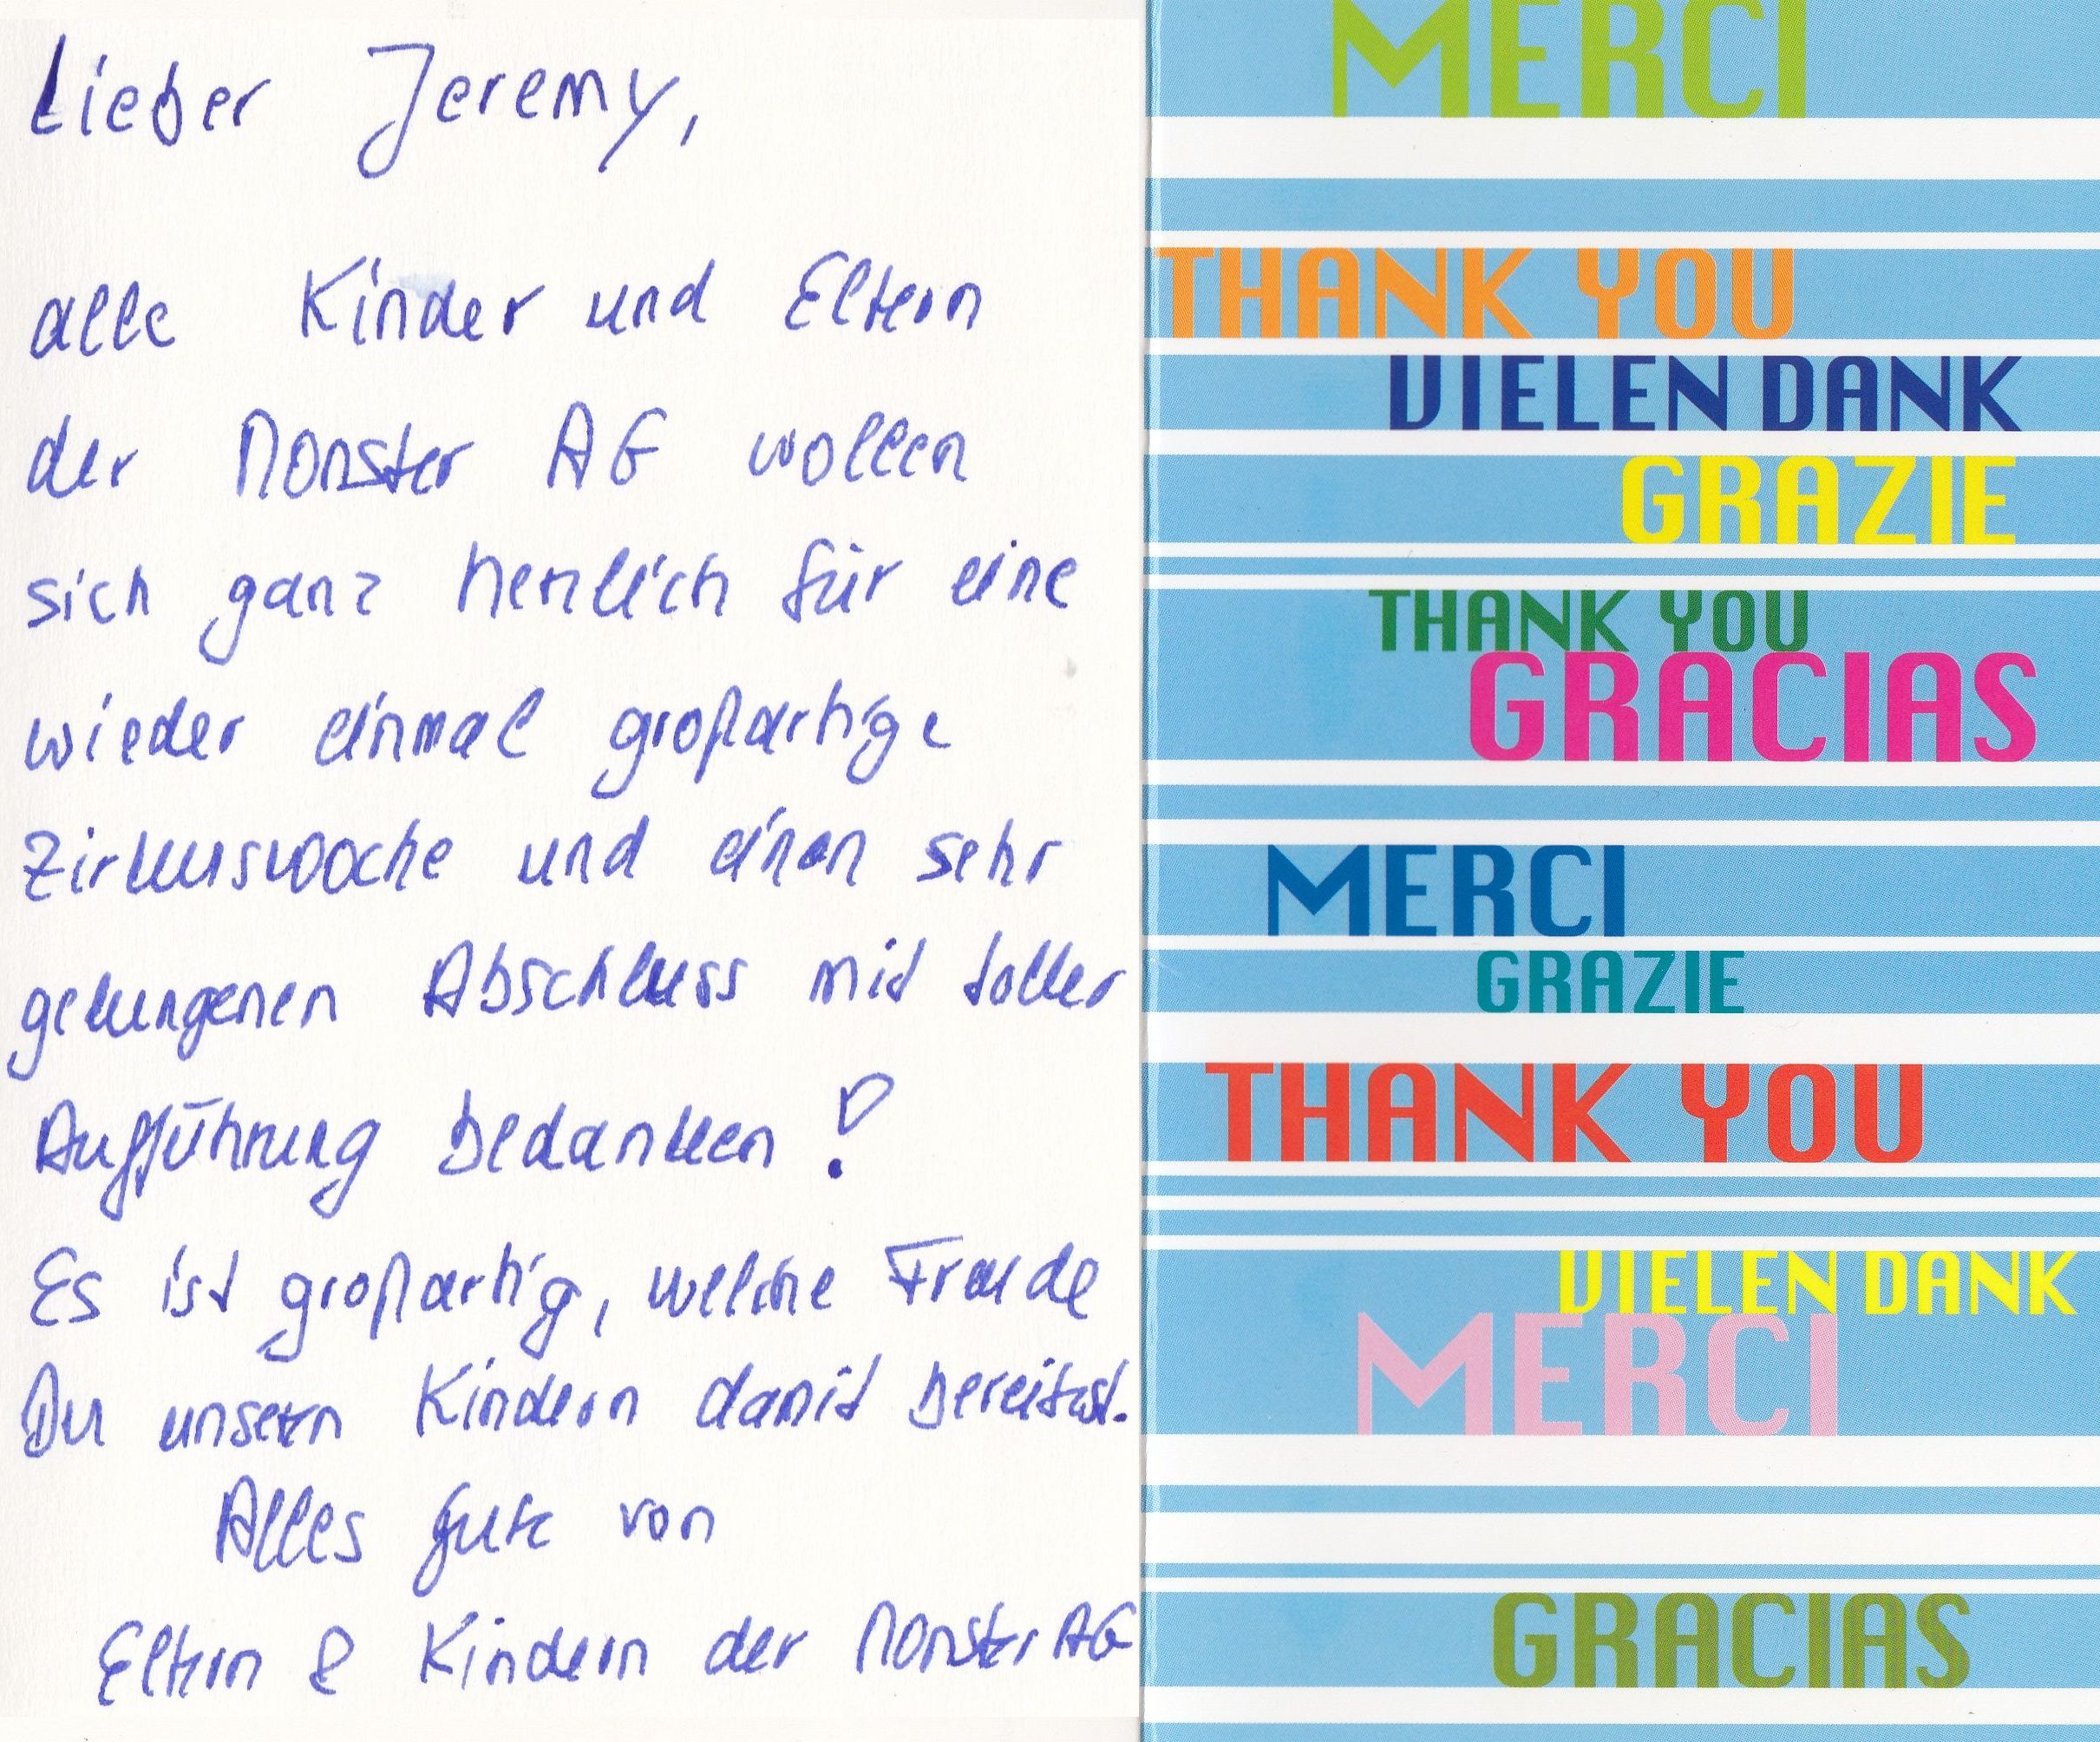 Lieber Jeremy,
alle Kinder und Eltern
der Monster AG wollen
sich ganz herzlich für eine
wieder einmal großartige
Zirkuswoche und einen sehr
gelungenen Abschluss mit toller
Aufführung bedanken!
Es ist großartig, welche Freude
Du unseren Kindern damit bereitest.
Alles Gute von
Eltern & Kindern der Monster AG
MERCI
THANK YOU
VIELEN DANK
GRAZIE
THANK YOU
GRACIAS
MERCI
GRAZIE
THANK YOU
VIELEN DANK
MERCI
GRACIAS